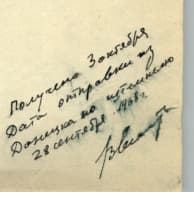 Получено 3 октября
Дата отправки из
Донецка по штемпелю
28 сентября 1968 г.